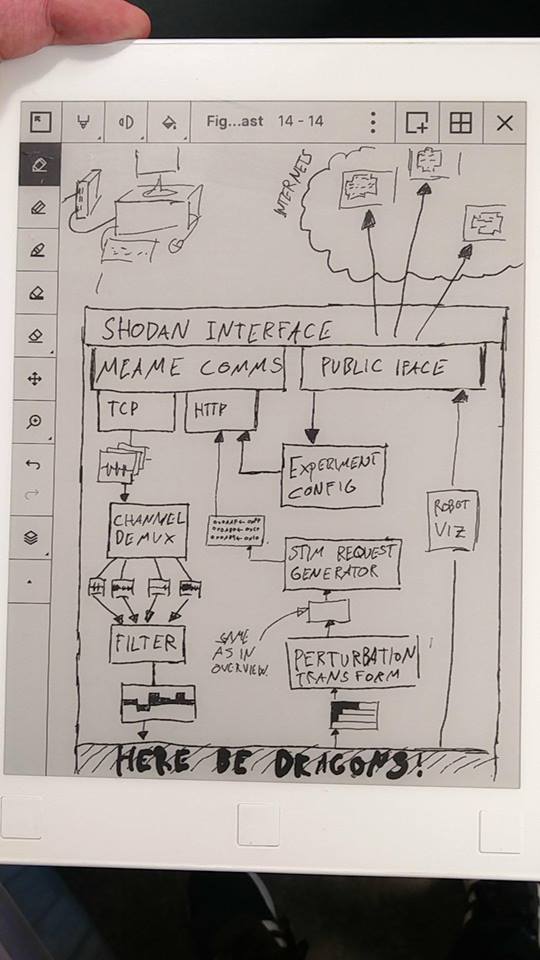 Fig...ast 14 - 14
INTERNETS
SHODAN INTERFACE
MEAME COMMS
PUBLIC IFACE
TCP
HTTP
EXPERIMENT
CONFIG
CHANNEL
DEMUX
STIM REQUEST
GENERATOR
ROBOT
VIZ
FILTER
SAME
AS IN
OVERVIEW.
PERTURBATION
TRANSFORM
HERE BE DRAGONS!